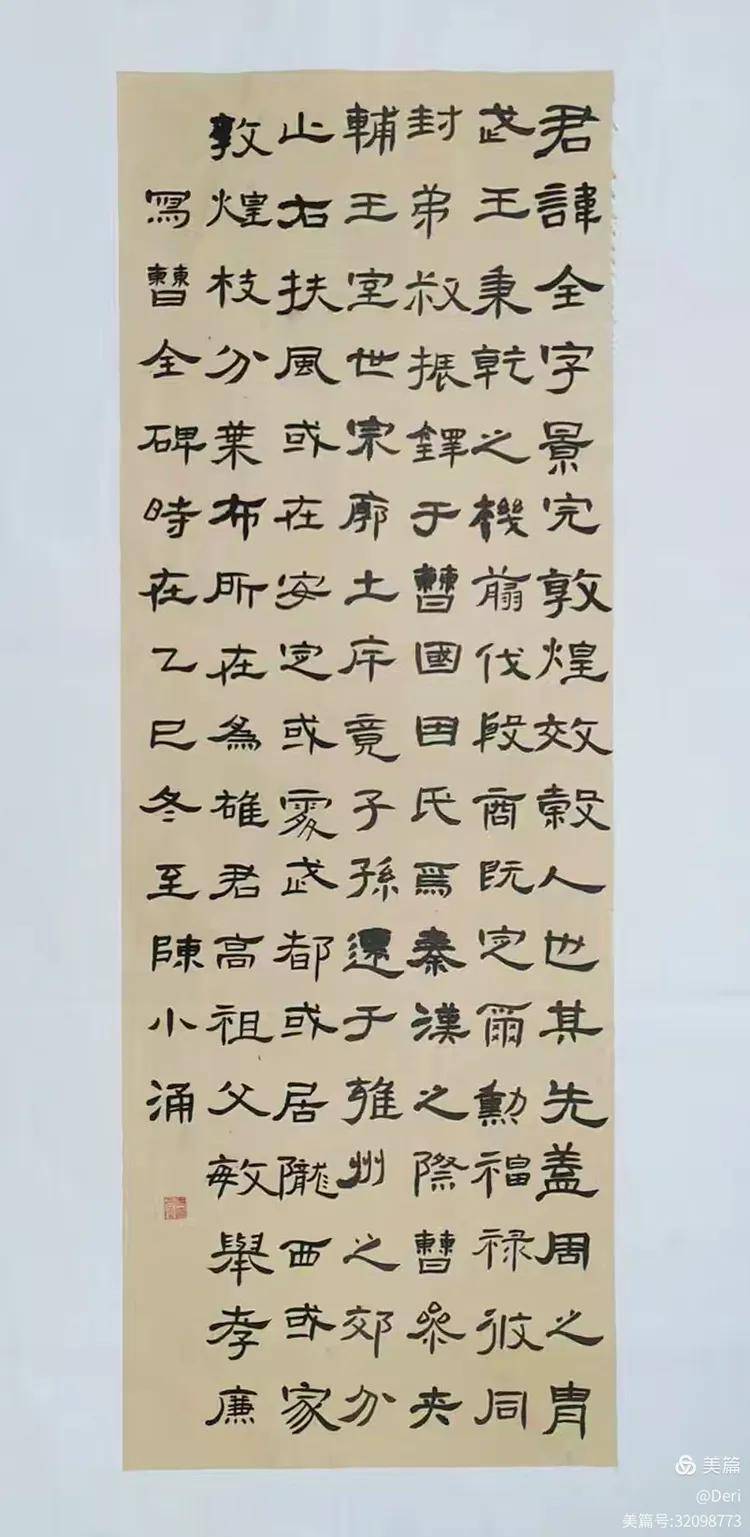 君諱全字景完敦煌效穀人也其先蓋周之胄
武王秉乾之機翦伐殷商既定爾勳福祿攸同
封弟叔振鐸于曹國因氏焉秦漢之際曹參夾
輔王室世宗廓土斥竟子孫遷于雍州之郊分
止右扶風或在安定或處武都或居隴西或家
敦煌枝分葉布所在為雄君高祖父敏舉孝廉
寫曹全碑時在乙巳冬至陳小涌
美篇
@Deri
美篇号:32098773